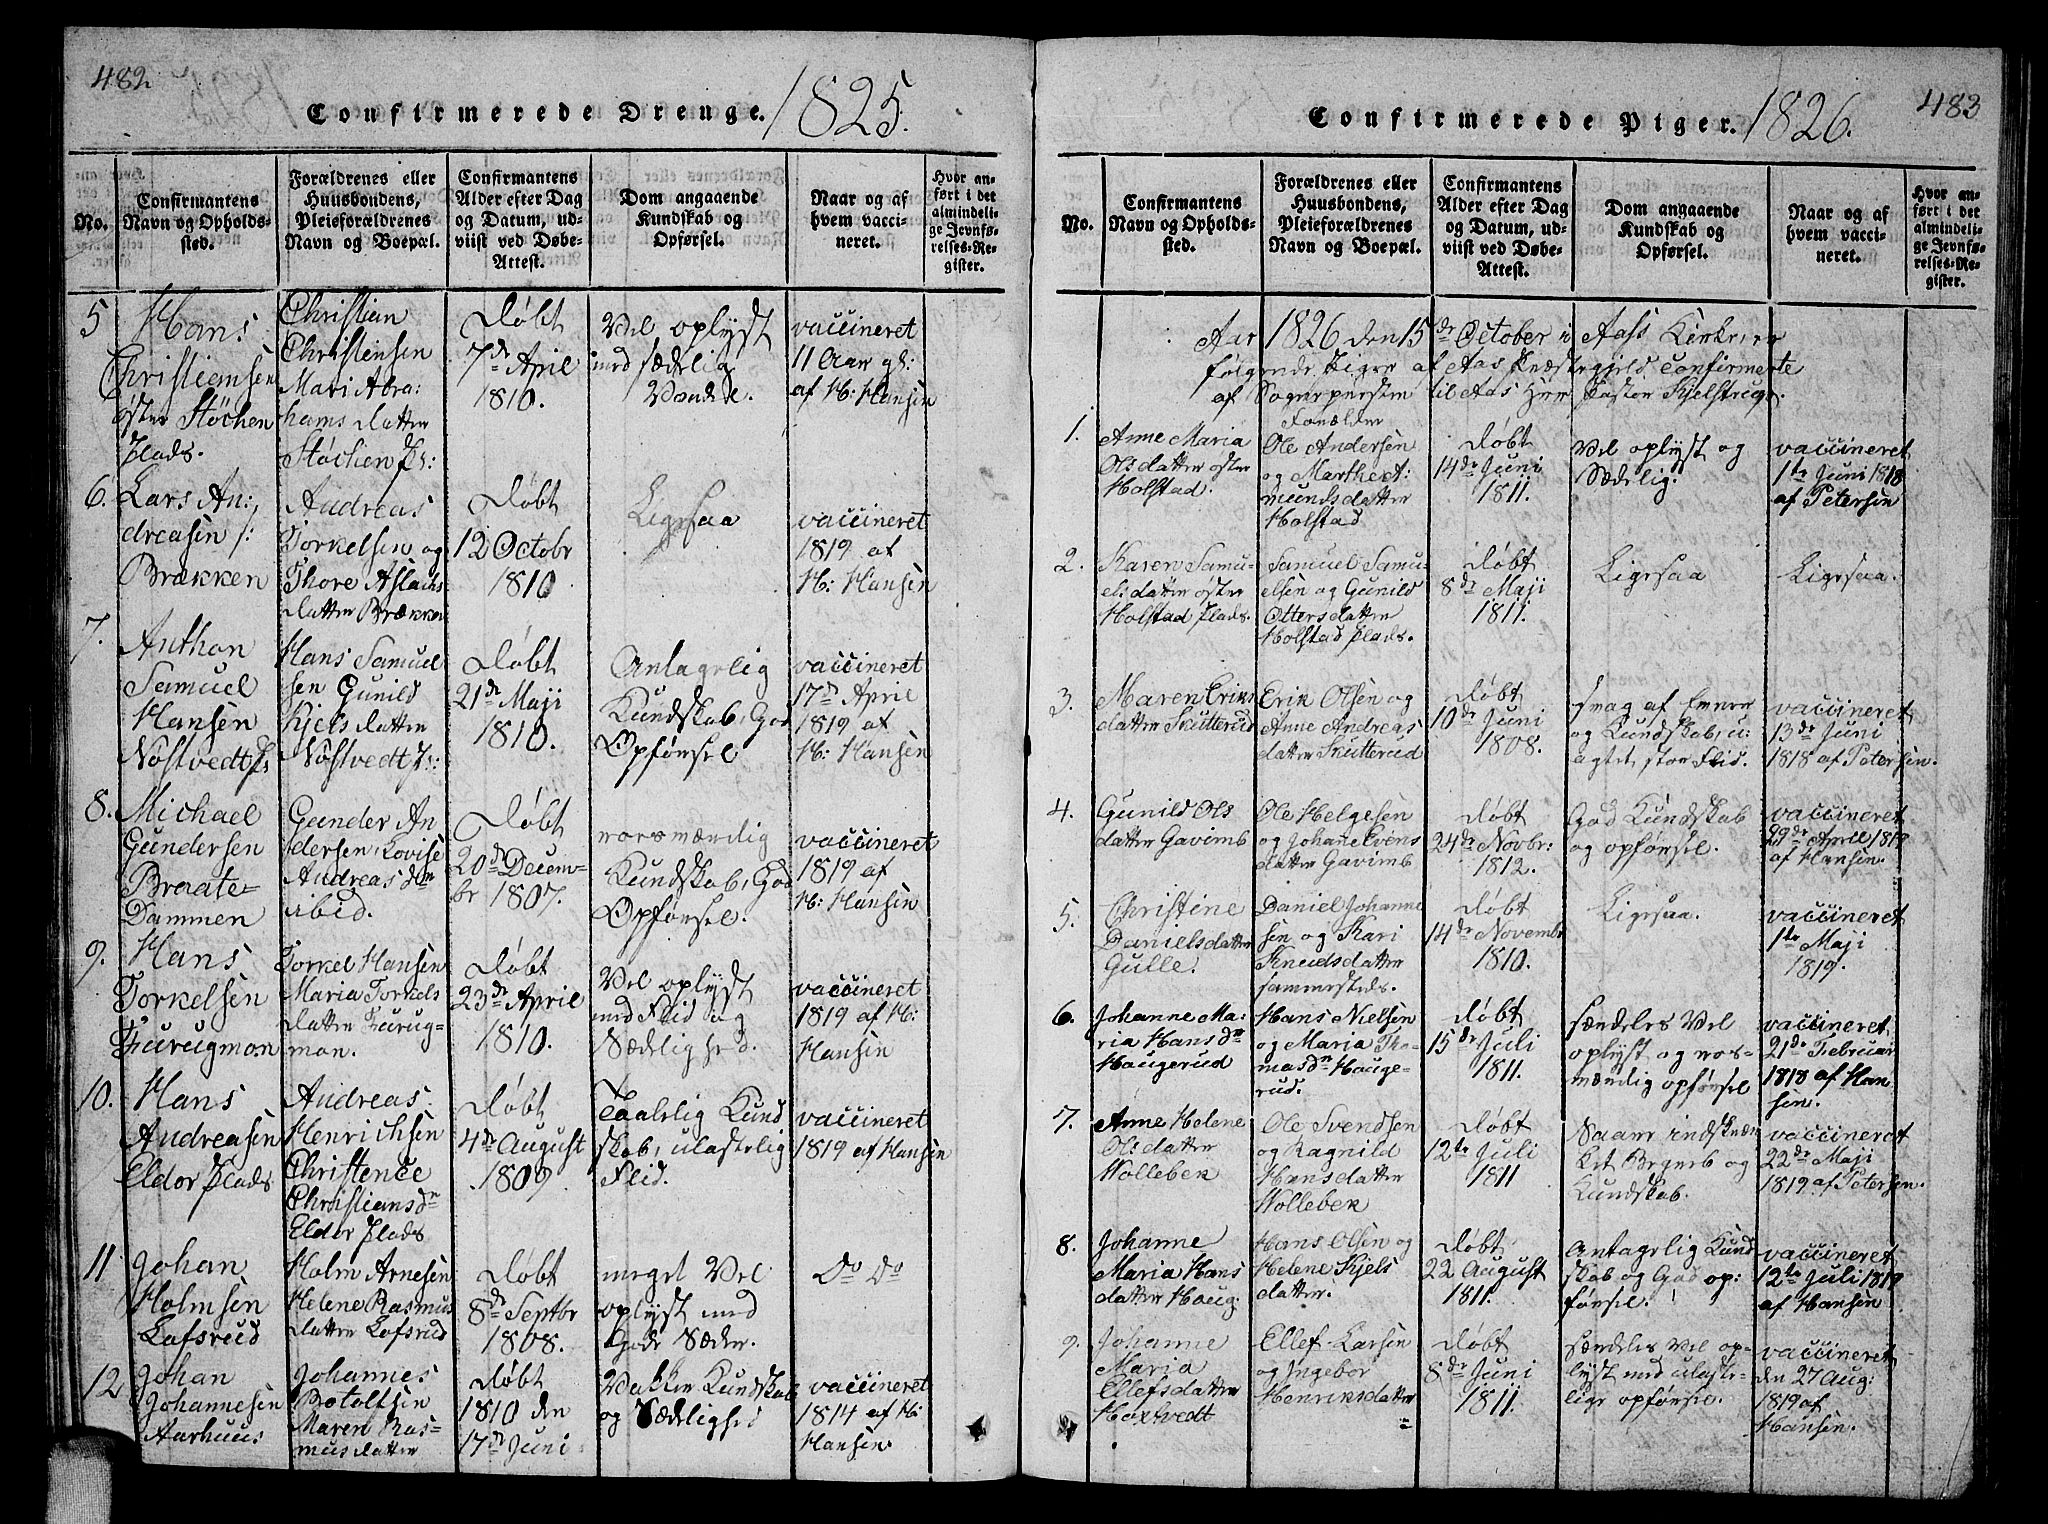 482
Confirmerede Drenge. 1825.
No.
Confirmantens
Navn og Opholds-
sted.
Forældrenes eller
Huusbondens,
Pleieforældrenes
Navn og Boepæl.
Confirmantens
Alder efter Dag
og Datum, ud-
viist ved Døbe-
Attest.
Dom angaaende
Kundskab og
Opførsel.
Naar og af
hvem vacci-
neret.
Hvor an-
ført i det
almindeli-
ge Jevnfø-
relses-Re-
gister.
5
Hans
Christiansen
øster Støchen
Plads.
Christian
Christensen
Mari Abra:
hams datter
Støchen Pl:
Døbt
7de April
1810.
Vel oplyst
med sædelig
Vandel.
vaccineret
11 Aar gl:
af H: Hansen
6.
Lars An:
dreasen /:
Brækken
Andreas
Torkelsen og
Thore Aslachs
datter Brækken
Døbt
12 Octobr
1810.
Ligesaa
vaccineret
1819 af
H: Hansen
7.
Anthon
Samuel
Hansen
Nøstvedt Pl
Hans Samuel
sen Gunild
Kjels datter
Nøstvedt Pl:
Døbt
21de Maji
1810.
Antagelig
Kundskab, God
Opførsel
vaccineret
17de April
1819 af
H: Hansen
8.
Michael
Gundersen
Braate=
Dammen
Gunder An
dersen, Lovise
Andreas dtr
ibid.
Døbt
20de Decem-
br 1807.
roesværdig
Kundskab, God
Opførsel.
vaccineret
1819 af
H: Hansen
9.
Hans
Torkelsen
Furugmon
Torkel Hansen
Maria Torkels
datter Furug-
mon.
Døbt
23de April
1810.
Vel oplyst
med Flid og
Sædelighed.
vaccineret
1819 af H:
Hansen
10.
Hans
Andreasen
Eldor Plads
Andreas
Henrichsen
Christence
Christiansdr
Eldor Plads
Døbt
4de August
1809.
Taalelig Kund
skab, ulastelig
Flid.
vaccineret
1819 af Hansen
11
Johan
Holmsen
Lofsrud
Holm Arnesen
Helene Rasmus
datter Lofsrud
Døbt
8de Septbr
1808.
meget Vel
oplyst med
Gode Sæder.
Do Do
12
Johan
Johannesen
Aarhuus
Johannes
Botoltsen
Maren Ras-
mus datter
Døbt
1810 den
17de Juni
Vakker Kundskab
og Sædelighed
vaccineret
1814 af H:
Hansen.
483
Confirmerede Piger. 1826.
No.
Confirmantens
Navn og Opholds-
sted.
Forældrenes eller
Huusbondens,
Pleieforældrenes
Navn og Boepæl.
Confirmantens
Alder efter Dag
og Datum, ud-
viist ved Døbe-
Attest.
Dom angaaende
Kundskab og
Opførsel.
Naar og af
hvem vacci-
neret.
Hvor an-
ført i det
almindeli-
ge Jevnfø-
relses-Re-
gister.
Aar 1826 den 15de October i Aass Kirke, er
følgende Piger af Aas Præstegjeld Confirmerte
af Sognepresten til Aas Herr Pastor Kjelstrup.
1.
Anne Maria
Olsdatter øster
Holstad.
Forælder
Ole Andersen
og Marthe At:
munds datter
Holstad
Døbt
14de Juni
1811.
Vel oplyst og
Sædelig.
vaccineret
1te Juni 1818
af Petersen
2.
Karen Samu-
elsdatter øster
Holstad Plads.
Samuel Samu-
elsen og Gunild
Otters datter
Holstad Plads.
Døbt
8de Maji
1811.
Ligesaa
Ligesaa.
3.
Maren Eriks
datter Skutterud
Erik Olsen og
Anne Andreas
datter Skutterud
Døbt
10de Juni
1808.
svag af Evner
og Kundskab, u:
agtet stor Flid.
vaccineret
13de Juni
1818 af Petersen.
4.
Gunild Ols
datter Gavimb
Ole Helgesen
og Johane Evens
datter Gavimb
Døbt
24de Novbr:
1812.
God Kundskab
og opførsel.
vaccineret
29de April 1819
af Hansen.
5.
Christine
Danielsdatter
Gulle.
Daniel Johanne
sen og Kari
Knudsdatter
sammesteds.
Døbt
14de Novembr
1810.
Ligesaa.
vaccineret
1te Maji
1819.
6.
Johanne Ma:
ria Hansdtr
Haugerud
Hans Nielsen
og Maria Tho-
masdtr Hauge-
rud.
Døbt
15de Juli
1811.
særdeles Vel
oplyst og roes-
værdig opførsel
vaccineret
21de Februar
1818 af Han
sen.
7.
Anne Helene
Olsdatter
Wollebek
Ole Svendsen
og Ragnild
Hansdatter
Wollebek
Døbt
12te Juli
1811
Saare indskræn
ket Begreb og
Kundskab.
vaccineret
22de Maji
1819. af Petersen.
8.
Johanne
Maria Hans
datter Haug:
Hans Olsen og
Helene Kjels
datter.
Døbt
22 August
1811.
Antagelig Kund
skab og God op:
førsel.
vaccineret
12te Juli 1819
af Hansen
9.
Johanne
Maria
Ellefsdatter
Hoxtvedt
Ellef Larsen
og Ingebor
Henriksdatter
=
Døbt
8de Juni
1811.
særdeles Vel op-
lyst med ulaste-
lige opførsel.
vaccineret
den 27 Aug:
1819 af
Hansen.